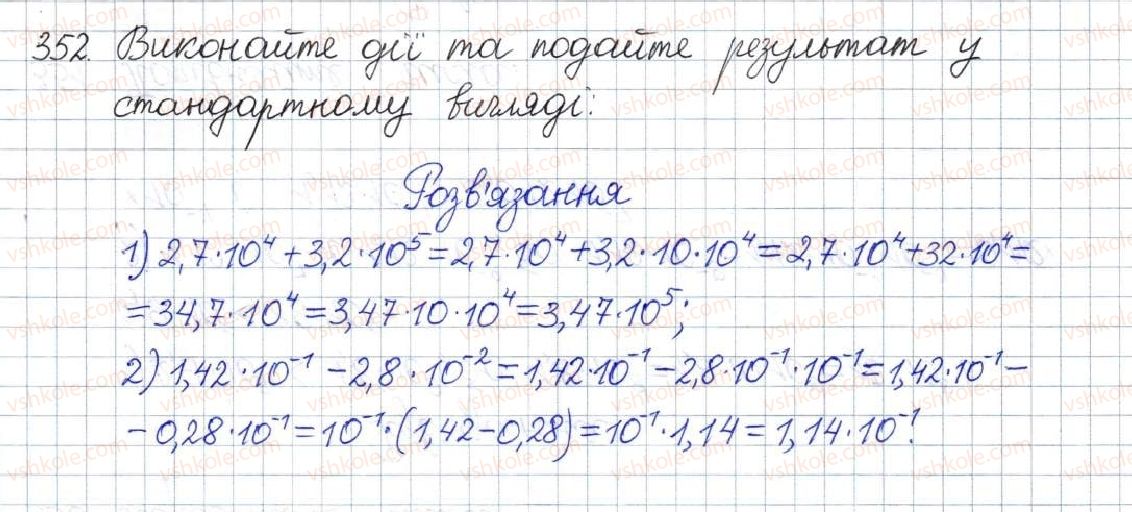 352. Виконайте дії та подайте результат у
стандартному вигляді:
Розв'язання
1) 2,7·10⁴+3,2·10⁵=2,7·10⁴+3,2·10·10⁴=2,7·10⁴+32·10⁴=
=34,7·10⁴=3,47·10·10⁴=3,47·10⁵;
2) 1,42·10⁻¹-2,8·10⁻²=1,42·10⁻¹-2,8·10⁻¹·10⁻¹=1,42·10⁻¹-
-0,28·10⁻¹=10⁻¹·(1,42-0,28)=10⁻¹·1,14=1,14·10⁻¹.